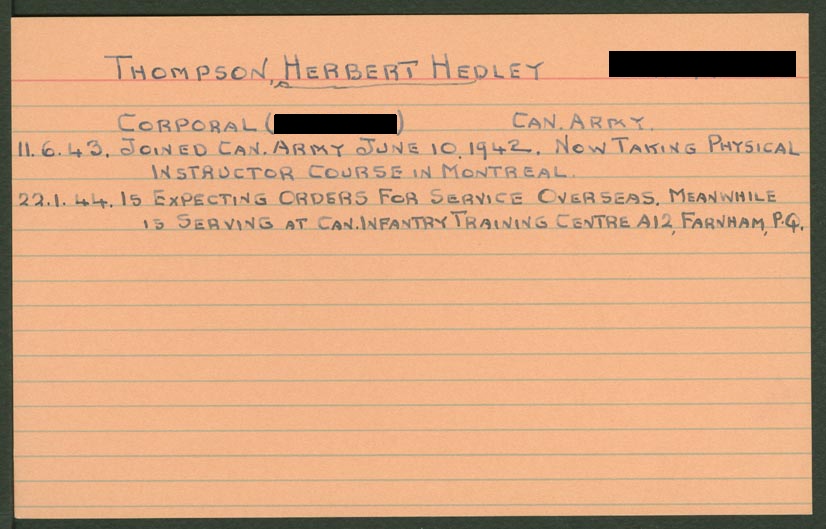 THOMPSON, HERBERT HEDLEY
CORPORAL ( ) CAN. ARMY.
11.6.43. JOINED CAN. ARMY JUNE 10, 1942. NOW TAKING PHYSICAL
INSTRUCTOR COURSE IN MONTREAL.
22.1.44. IS EXPECTING ORDERS FOR SERVICE OVERSEAS. MEANWHILE
IS SERVING AT CAN. INFANTRY TRAINING CENTRE A12, FARNHAM, P.Q.